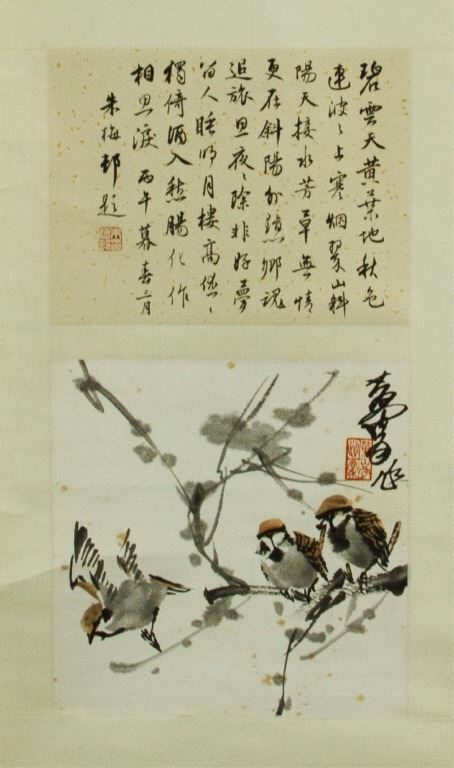 碧雲天黄葉地秋色
連波〻上寒烟翠山斜
陽天接水芳草無情
更在斜陽外黯鄉魂
追旅思夜〻除非好夢
留人睡明月樓高休〻
獨倚酒入愁腸化作
相思淚 丙午暮春三月
朱梅邨題
作